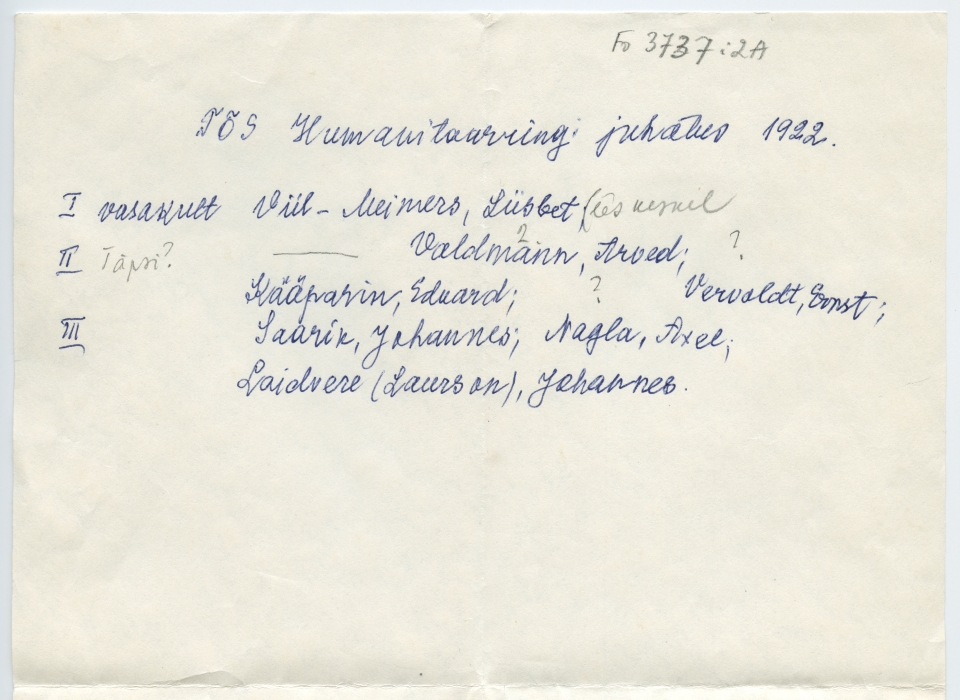 Fo 3737:2A
TÕS Humanitaarringi juhatus 1922.
I vasakult Viil-Meimers, Liisbet (ees keskel
II Täpsi? ——— Valdmann, Arved; ?
?
Kääparin, Eduard; ? Vervoldt, Ernst;
III Saarik, Johannes; Nagla, Axel;
Laidvere (Laurson), Johannes.